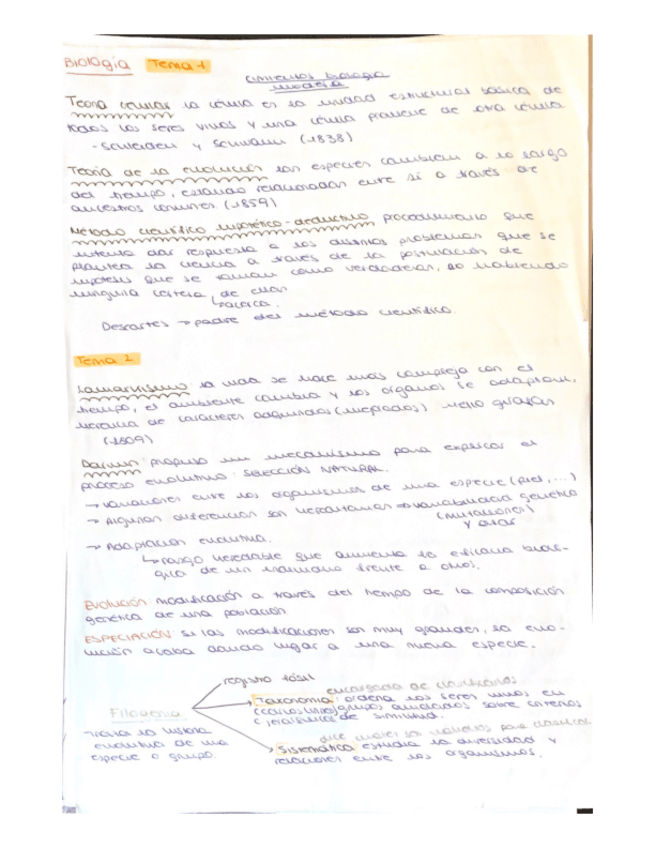 Biología Tema 1
cimientos biología
moderna
Teoría celular la célula es la unidad estructural básica de
todos los seres vivos y una célula proviene de otra célula
- Schleiden y Schwann (1838)
Teoría de la evolución las especies cambian a lo largo
del tiempo, estando relacionadas entre sí a través de
ancestros comunes (1859)
Método científico hipotético-deductivo procedimiento que
intenta dar respuesta a los distintos problemas que se
plantea la ciencia a través de la postulación de
hipótesis que se toman como verdaderas, no habiendo
ninguna certeza de ellas
↳ acerca.
Descartes → padre del método científico.
Tema 2
Lamarckismo: la vida se hace más compleja con el
tiempo, el ambiente cambia y los órganos se adaptan,
herencia de caracteres adquiridos (mejorados) cuello jirafas
(1809)
Darwin: propuso un mecanismo para explicar el
proceso evolutivo: SELECCIÓN NATURAL.
→ Variaciones entre los organismos de una especie (piel, ...)
→ Algunas diferencias son hereditarias → variabilidad genética
(mutaciones)
y otras
→ Adaptación evolutiva.
↳ rasgo heredable que aumenta la eficacia bioló-
gica de un individuo frente a otros.
Evolución: modificación a través del tiempo de la composición
genética de una población
ESPECIACIÓN Si las modificaciones son muy grandes, la evo-
lución acaba dando lugar a una nueva especie.
registro fósil
encargada de clasificarlos
Taxonomía: ordena los seres vivos en
grupos anidados sobre criterios
de similitud.
Filogenia
Traza la historia
evolutiva de una
especie o grupo.
dice cuáles son los criterios para clasificar
Sistemática estudia la diversidad y
relaciones entre los organismos.